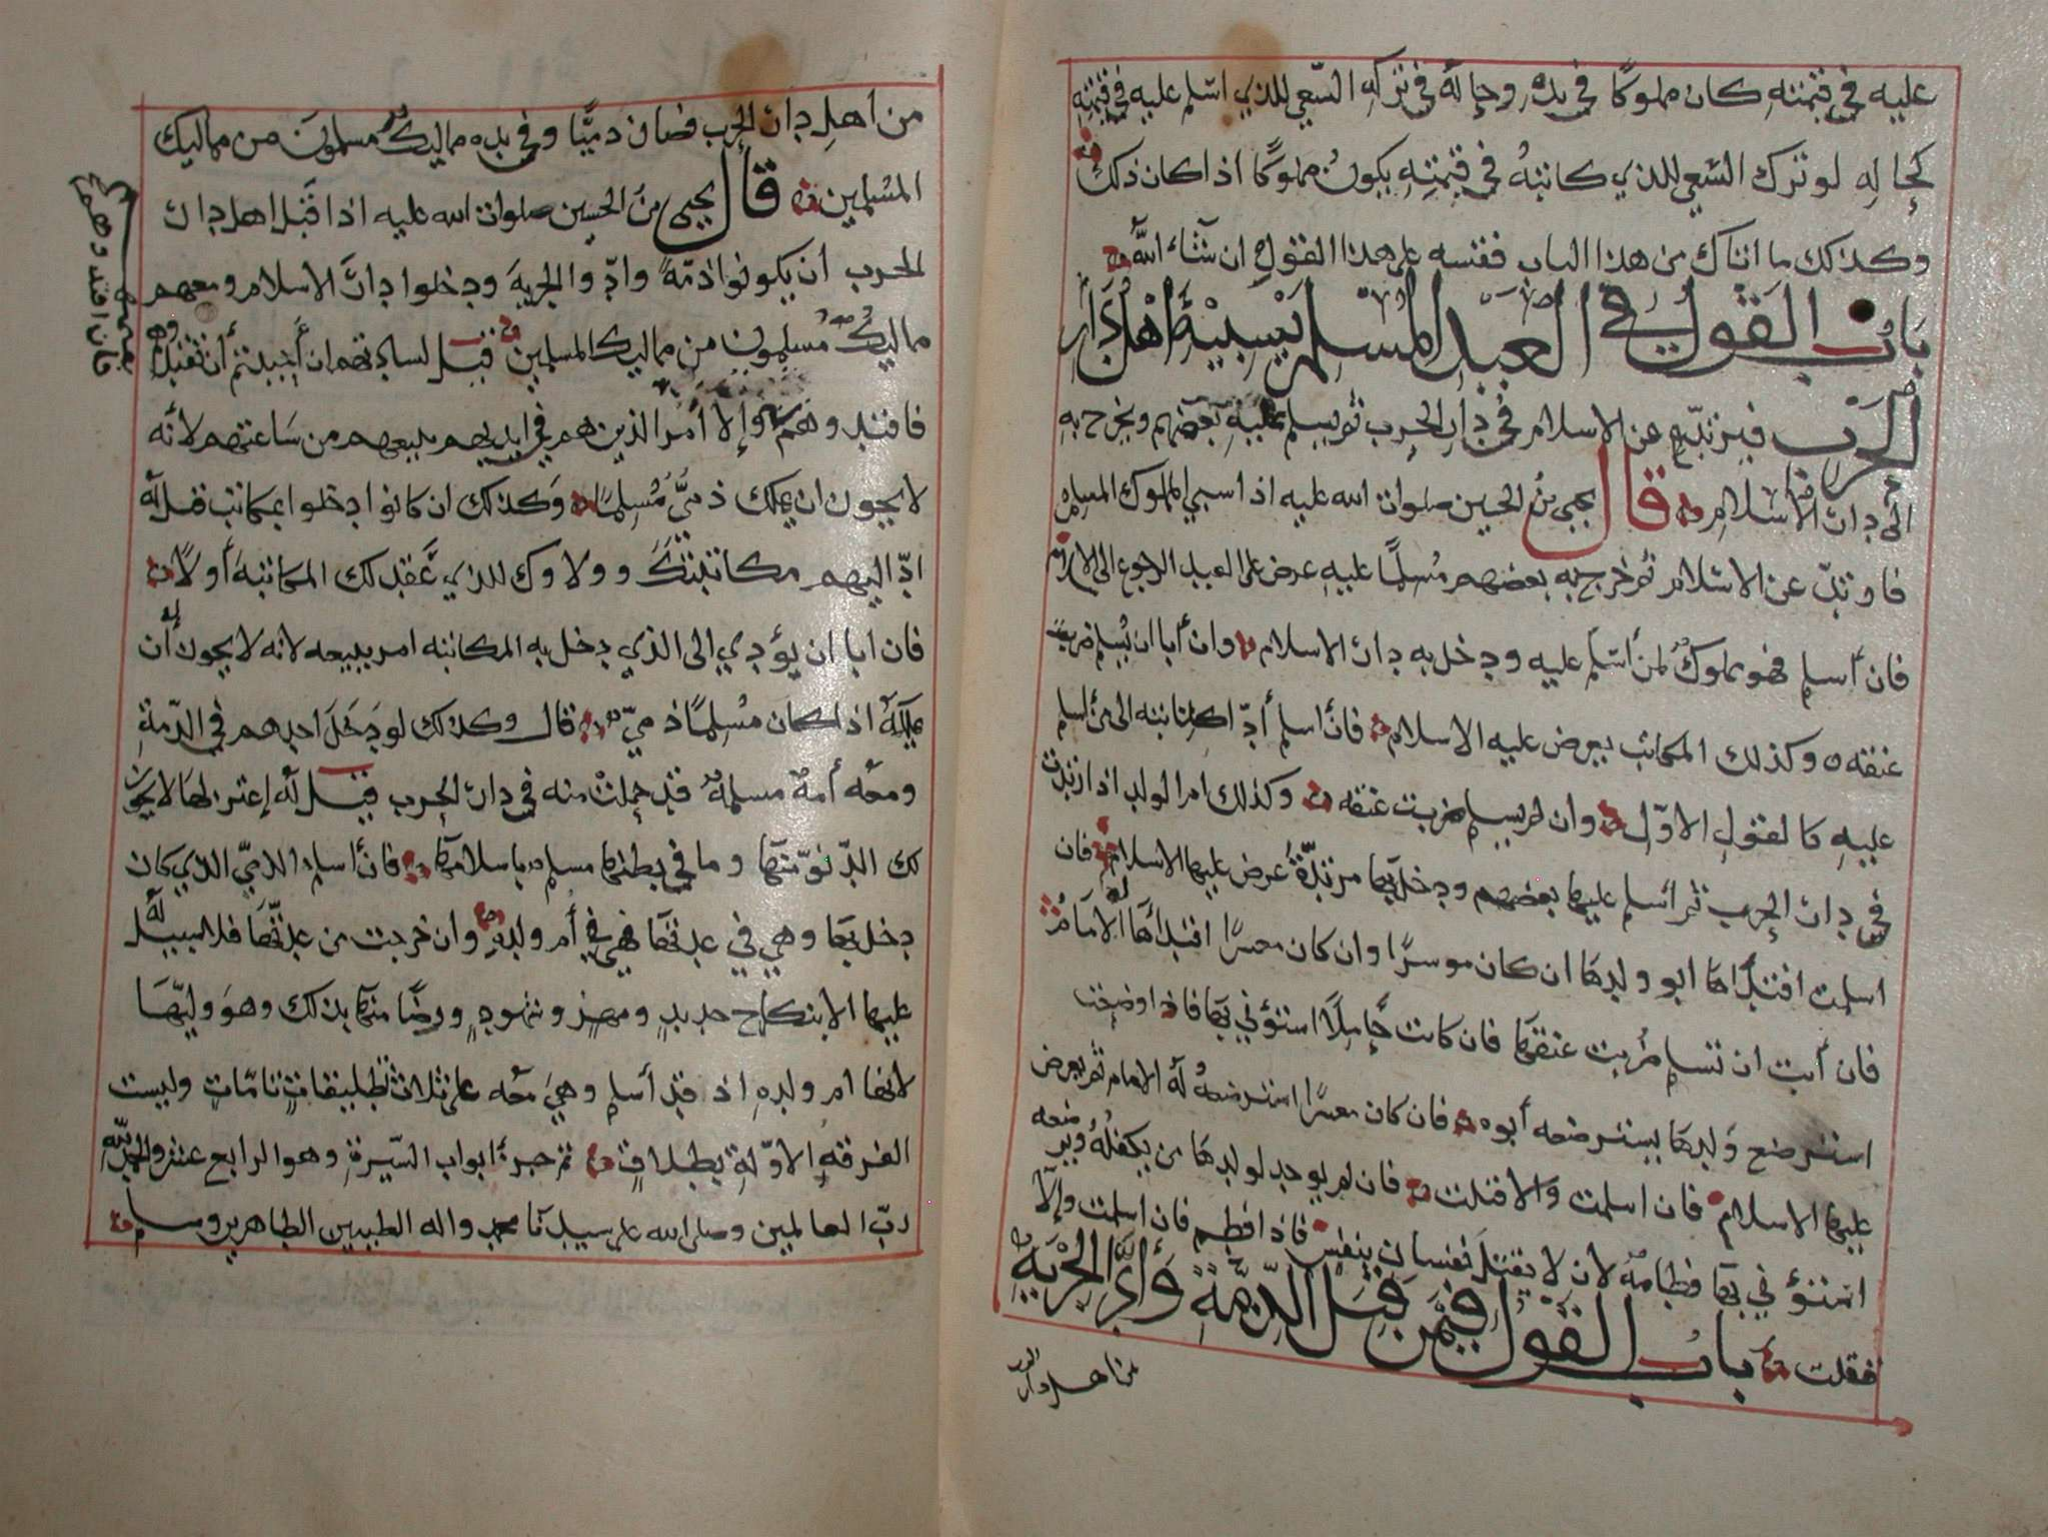 عليه في قيمته كان مملوكًا في يده وحاله في تركه السعي للذي اسلم عليه في قيمته
كحاله لو ترك السعي للذي كاتبه في قيمته يكون مملوكًا اذا كان ذلك
وكذلك ما اتاك من هذا الباب فقسه على هذا القول ان شاء الله
باب القول في العبد المسلم يسبيه اهل دار
الحرب فيرتد عن الاسلام في دار الحرب ثم يسلم عليه بعضهم ويخرج به
الى دار الاسلام قال يحيى بن الحسين صلوات الله عليه اذا سبي المملوك المسلم
فارتد عن الاسلام ثم خرج به بعضهم مسلمًا عليه عرض على العبد الرجوع الى الاسلام
فان أسلم فهو مملوك لمن أسلم عليه ودخل به دار الاسلام وان أبا ان يسلم ضربت
عنقه وكذلك المكاتب يعرض عليه الاسلام فان أسلم أدّا كتابته الى من أسلم
عليه كالقول الاوّل وان لم يسلم ضربت عنقه وكذلك ام الولد اذا ارتدت
في دار الحرب ثم أسلم عليها بعضهم ودخل بها مرتدّة عرض عليها الاسلام فان
اسلمت افتداها ابو ولدها ان كان موسرًا وان كان معسرًا افتداها له الامام
فان أبت ان تسلم ضربت عنقها فان كانت حاملًا استؤني بها فاذا وضعت
استرضع ولدها يسترضعه أبوه فان كان معسرًا استرضعه له الامام ثم يعرض
عليها الاسلام فان اسلمت والا قتلت فان لم يوجد لولدها من يكفله ويرضعه
استؤني بها فطامه لان لا يقتل نفسان بنفس فاذا فطم فان اسلمت وإلّا
فقتلت باب القول فيمن قبل الذمّة وأدّى الجزية
من اهل دار
من أهل دار الحرب فصار ذميًّا وفي يده مماليك مسلمون من مماليك
المسلمين قال يحيى بن الحسين صلوات الله عليه اذا قبل اهل دار
الحرب أن يكونوا ذمّة وادّوا الجزية ودخلوا دار الاسلام ومعهم
مماليك مسلمون من مماليك المسلمين قيل لساداتهم ان أحببتم أن تفتدوهم
فافتدوهم وإلا أمر الذين هم في ايديهم ببيعهم من ساعتهم لأنه
لا يجوز ان يملك ذميّ مُسلمًا وكذلك ان كانوا دخلوا بمكاتب قيل له
ادّ اليهم مكاتبتك وولاوك للذي عقد لك المكاتبة أولًا
فان ابا ان يؤدي الى الذي دخل به المكاتبه امر ببيعه لانه لا يجوز له أن
يملكه اذا كان مسلمًا ذميّ قال وكذلك لو دخل احدهم في الذمة
ومعه أمة مسلمة قد حملت منه في دار الحرب قيل له إعتزلها لا يجوز
لك الدنو منها وما في بطنها مسلم باسلامها فان أسلم الذميّ الذي كان
دخل بها وهي في عدتها فهي أم ولده وان خرجت من عدتها فلا سبيل له
عليها الا بنكاح جديد ومهر وشهود ورضًا منها بذلك وهو وليّها
لانها ام ولده اذ قد أسلم وهي معه على ثلاث تطليقات تامّات وليست
الفرقة الاوّلة بطلاق تم جزء أبواب السّيرة وهو الرابع عشر والحمد لله
ربّ العالمين وصلى الله على سيدنا محمد واله الطيبين الطاهرين وسلم